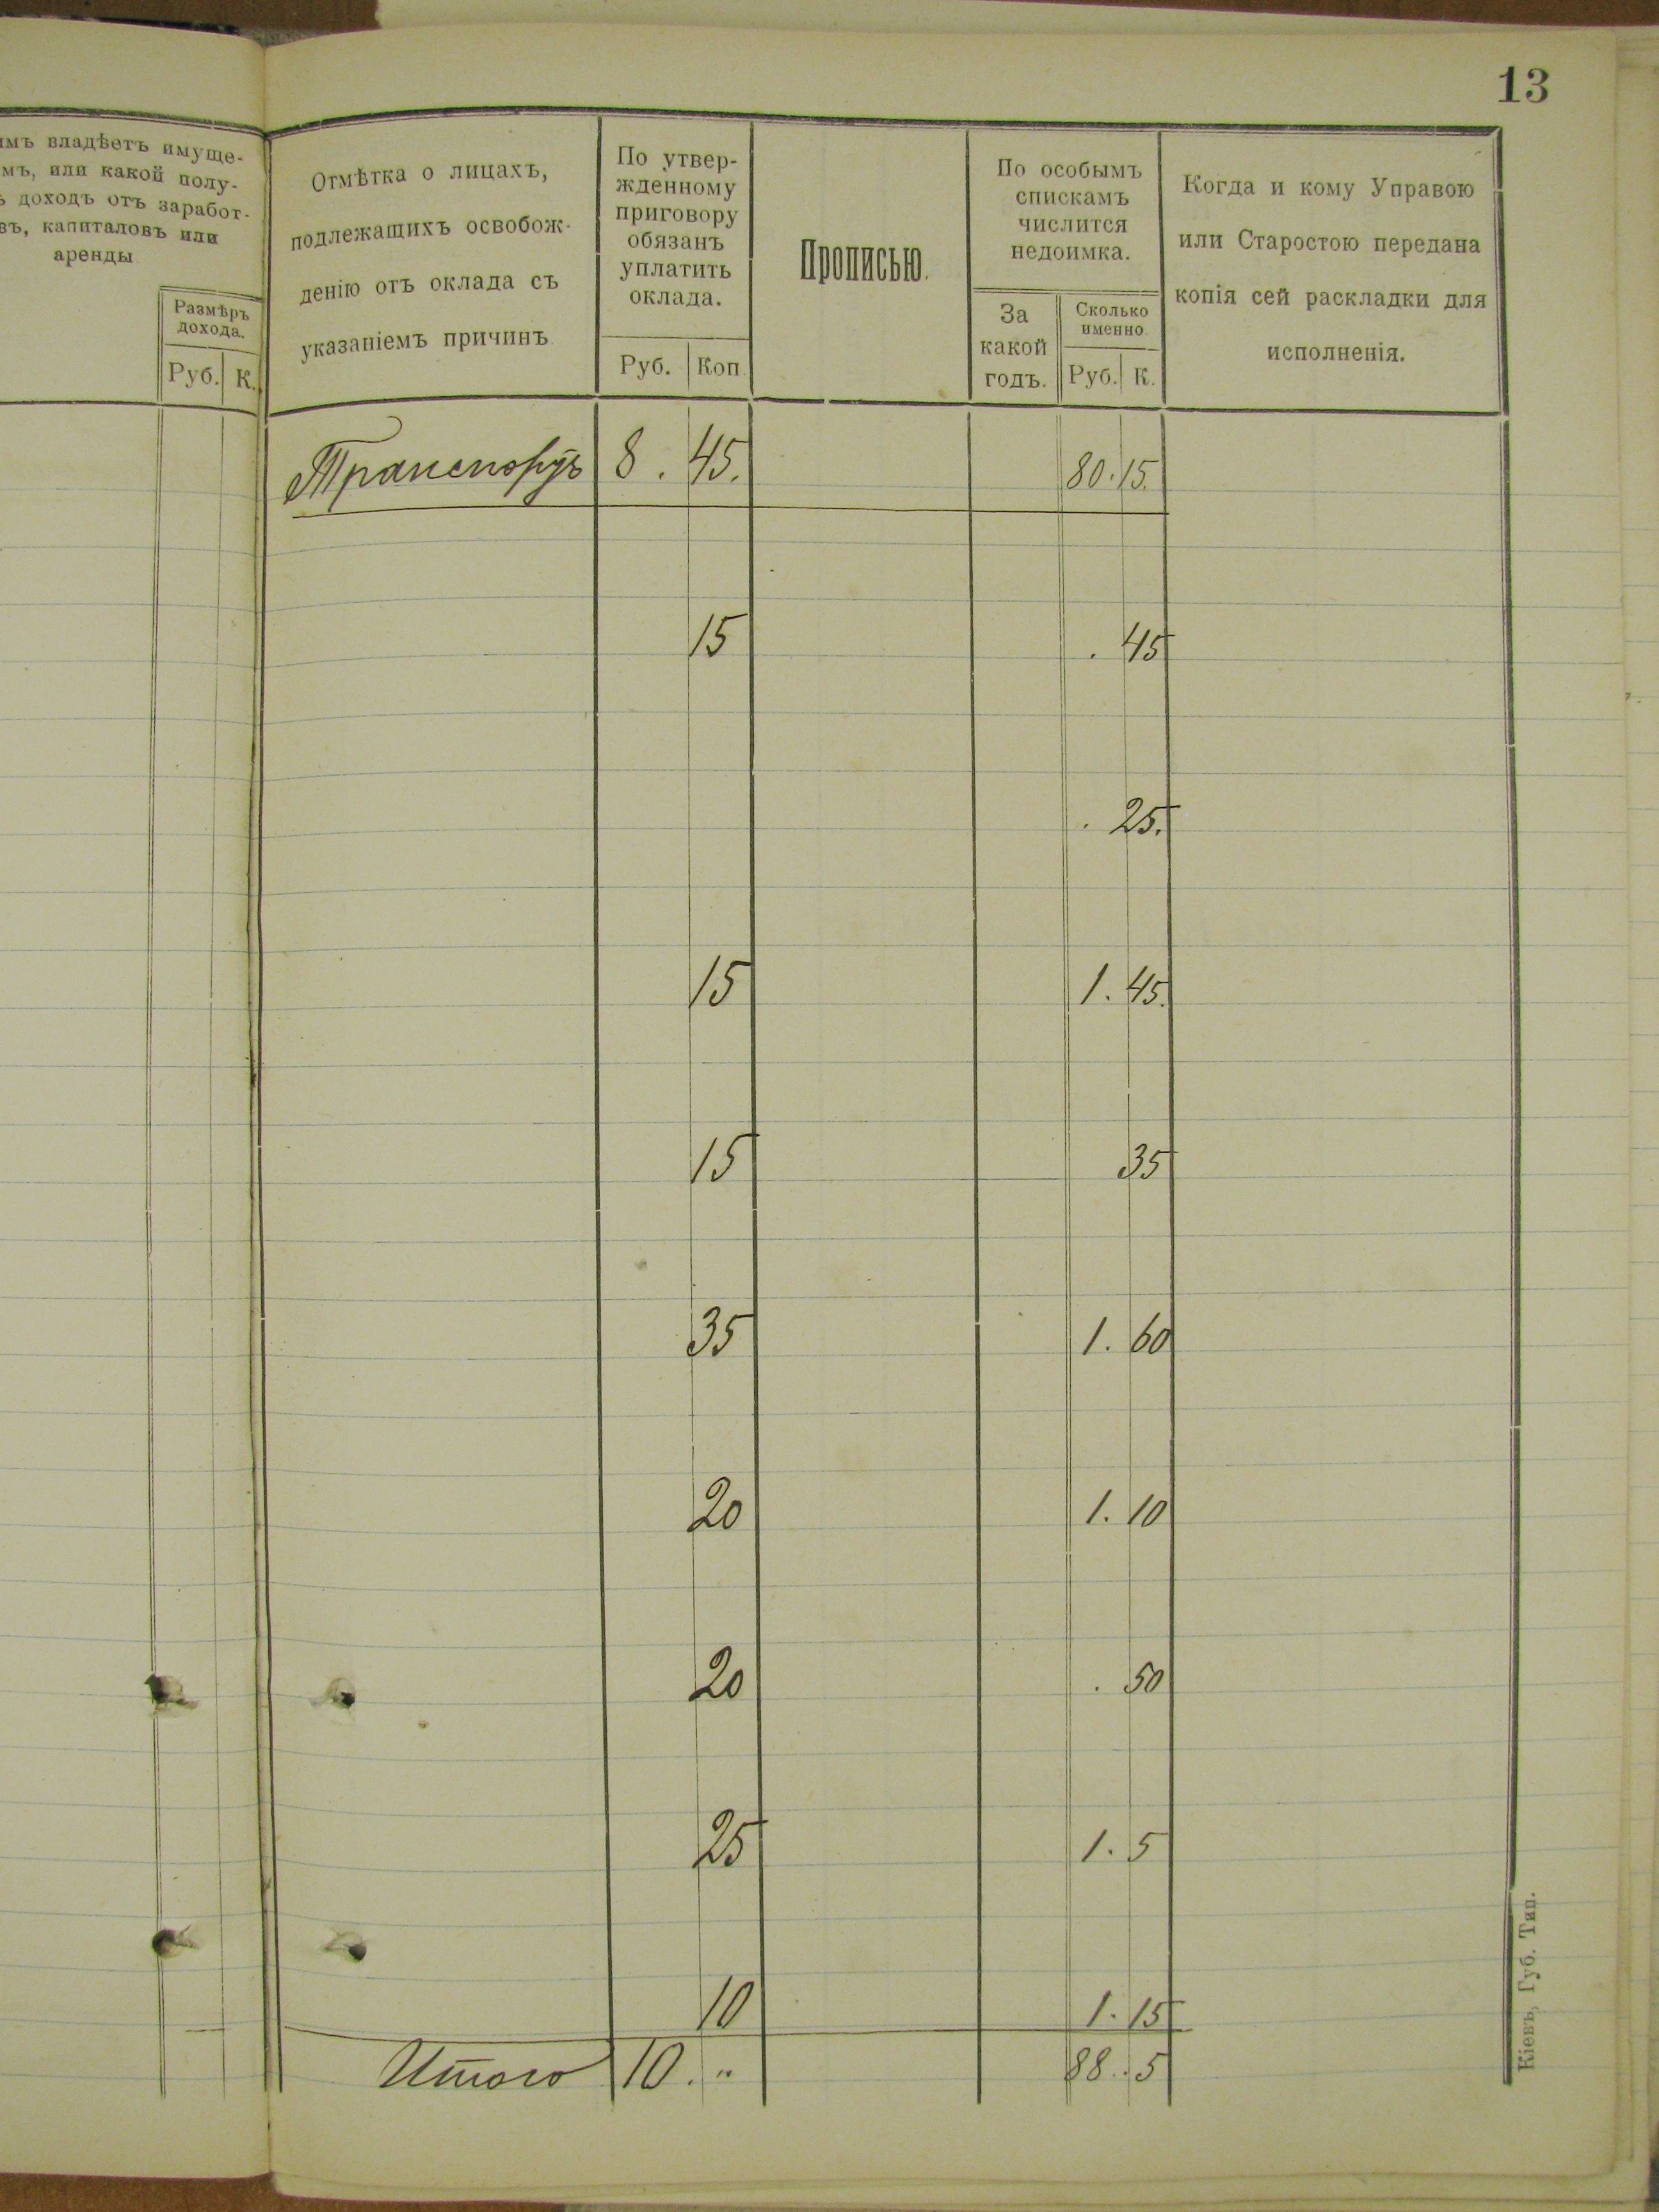 13
имъ владѣетъ имуще-
мъ, или какой полу-
ъ доходъ отъ заработ-
въ, капиталовъ или
аренды
Размѣръ
дохода.
Руб. К.
Отмѣтка о лицахъ,
подлежащихъ освобож-
денію отъ оклада съ
указаніемъ причинъ
По утвер-
жденному
приговору
обязанъ
уплатить
оклада.
Руб. Коп.
Прописью.
По особымъ
спискамъ
числится
недоимка.
За
какой
годъ.
Сколько
именно
Руб. К.
Когда и кому Управою
или Старостою передана
копія сей раскладки для
исполненія.
Транспортъ 8. 45. 80. 15.
15 . 45
. 25.
15 1. 45.
15 35
35 1. 60
20 1. 10
20 . 50
25 1. 5
10 1. 15
Итого 10. " 88. 5
Кіевъ, Губ. Тип.